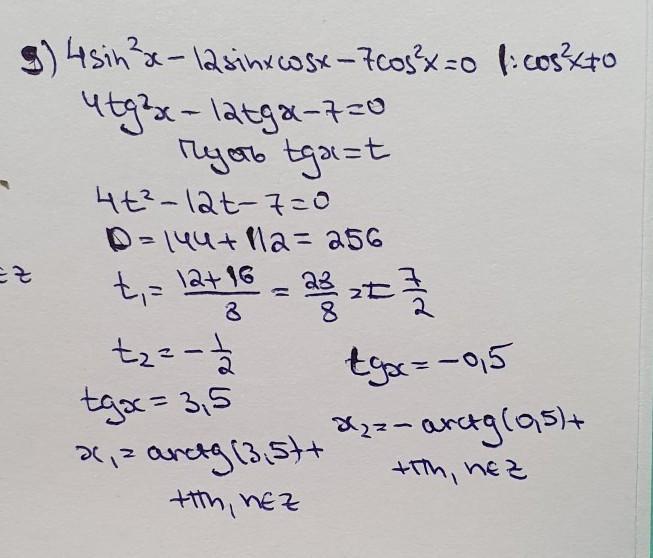 g) 4sin²x - 12sinxcosx - 7cos²x = 0 |: cos²x≠0
4tg²x - 12tgx - 7 = 0
Пусть tgx = t
4t² - 12t - 7 = 0
D = 144 + 112 = 256
∈ Z
t₁ = (12+16)/8 = 28/8 = 7/2
t₂ = -1/2
tgx = -0,5
tgx = 3,5
x₂ = - arctg(0,5) +
x₁ = arctg(3,5) +
+πn, n∈Z
+πn, n∈Z